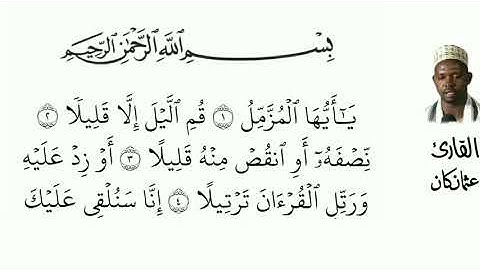 بِسْمِ ٱللَّهِ ٱلرَّحْمَٰنِ ٱلرَّحِيمِ
يَـٰٓأَيُّهَا ٱلْمُزَّمِّلُ ١ قُمِ ٱلَّيْلَ إِلَّا قَلِيلًا ٢
نِّصْفَهُۥٓ أَوِ ٱنقُصْ مِنْهُ قَلِيلًا ٣ أَوْ زِدْ عَلَيْهِ
وَرَتِّلِ ٱلْقُرْءَانَ تَرْتِيلًا ٤ إِنَّا سَنُلْقِى عَلَيْكَ
القارئ
عثمانكان